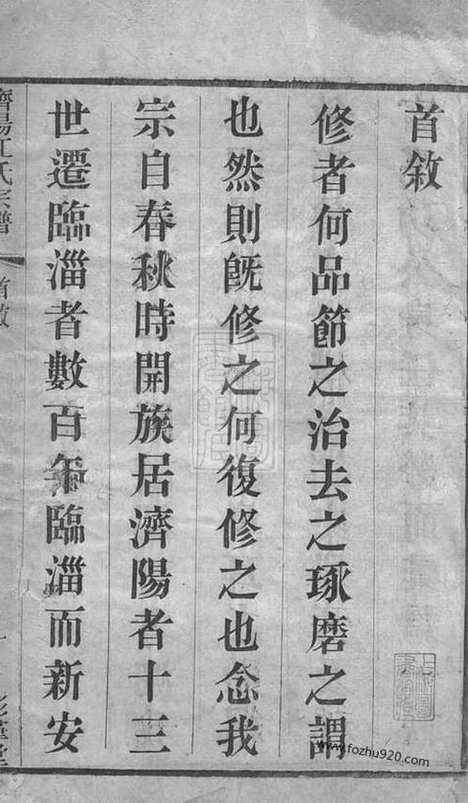 首敘
修者何品節之治去之琢磨之謂
也然則既修之何復修之也念我
宗自春秋時開族居濟陽者十三
世遷臨淄者數百年臨淄而新安
濟陽江氏宗譜
首敘
一
www.fozhu920.com